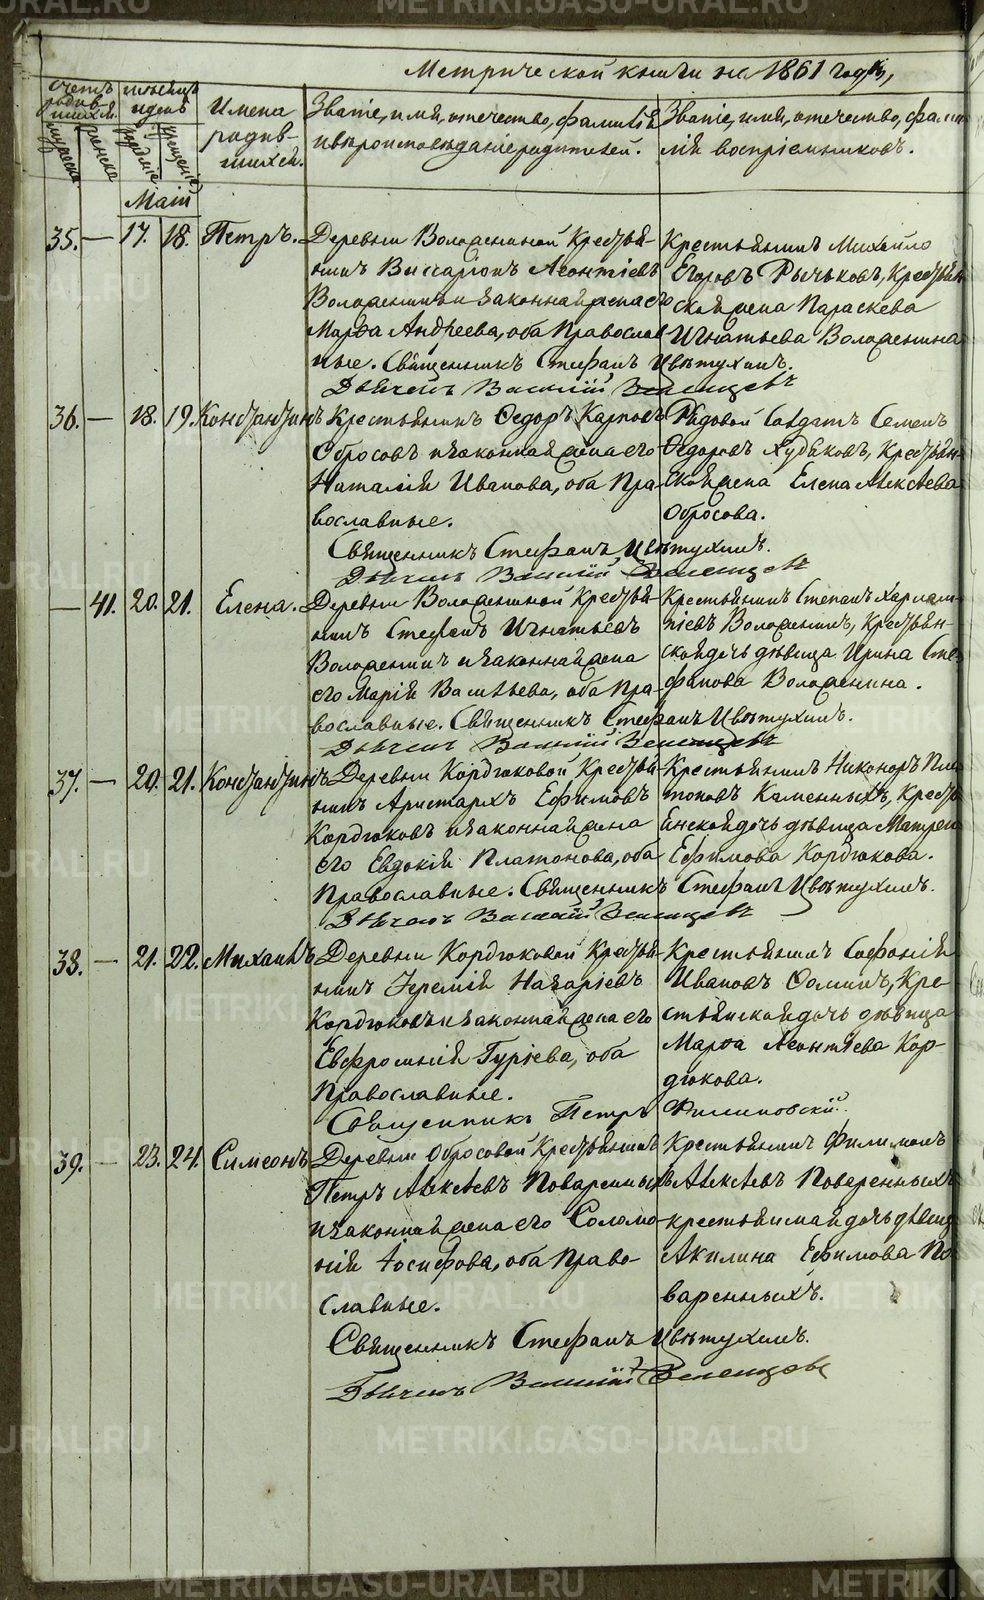 Метрической книги на 1861 годъ,
Счетъ родившихся.
Мѣсяцъ и день
Имена родившихся.
Званіе, имя, отечество, фамилія и вѣроисповѣданіе родителей.
Званіе, имя, отечество, фамилія воспріемниковъ.
мужеска
женска
рожденія
крещенія
Маій
35. — 17. 18. Петръ.
Деревни Воложениной Крестья-
нинъ Виссаріонъ Леонтіевъ
Воложенинъ и законная жена его
Марѳа Андреева, оба Православ-
ные. Священникъ Стефанъ Цвѣтухинъ.
Дьячекъ Василій Зеленцовъ
Крестьянинъ Михайло
Егоровъ Рычьковъ, Крестьян-
ская жена Параскева
Игнатьева Воложенина
36. — 18. 19. Константинъ
Крестьянинъ Ѳедоръ Карповъ
Обросовъ и законная жена его
Наталія Иванова, оба Пра-
вославные.
Священникъ Стефанъ Цвѣтухинъ.
Дьячекъ Василій Зеленцовъ
Рядовой Солдатъ Семенъ
Ѳедоровъ Худяковъ, Крестьян-
ская жена Елена Алексѣева
Обросова.
— 41. 20. 21. Елена.
Деревни Воложениной Крестья-
нинъ Стефанъ Игнатьевъ
Воложенинъ и законная жена
его Марія Васильева, оба Пра-
вославные. Священникъ Стефанъ Цвѣтухинъ.
Дьячекъ Василій Зеленцовъ
Крестьянинъ Степанъ Харлам-
піевъ Воложенинъ, Крестьян-
ская дочь дѣвица Ирина Сте-
фанова Воложенина.
37. — 20. 21. Константинъ
Деревни Кордюковой Крестья-
нинъ Аристархъ Ефимовъ
Кордюковъ и законная жена
его Евдокія Платонова, оба
Православные. Священникъ Стефанъ Цвѣтухинъ.
Дьячекъ Василій Зеленцовъ
Крестьянинъ Никоноръ Пла-
тоновъ Каменныхъ, Кресть-
янская дочь дѣвица Матрена
Ефимова Кордюкова.
38. — 21. 22. Михаилъ
Деревни Кордюковой Крестья-
нинъ Іеремій Назаріевъ
Кордюковъ и законная жена его
Евфросинія Гуріева, оба
Православные.
Священникъ Петръ Филиповскій.
Крестьянинъ Софоній
Ивановъ Ѳоминъ, Кре-
стьянская дочь дѣвица
Марѳа Леонтіева Кор-
дюкова.
39. — 23. 24. Симеонъ
Деревни Обросовой Крестьянинъ
Петръ Алексѣевъ Поваренныхъ
и законная жена его Соломо-
нія Іосифова, оба Право-
славные.
Священникъ Стефанъ Цвѣтухинъ.
Дьячекъ Василій Зеленцовъ
Крестьянинъ Филимонъ
Алексѣевъ Поваренныхъ
крестьянская дочь дѣвица
Акилина Ефимова По-
варенныхъ.
METRIKI.GASO-URAL.RU